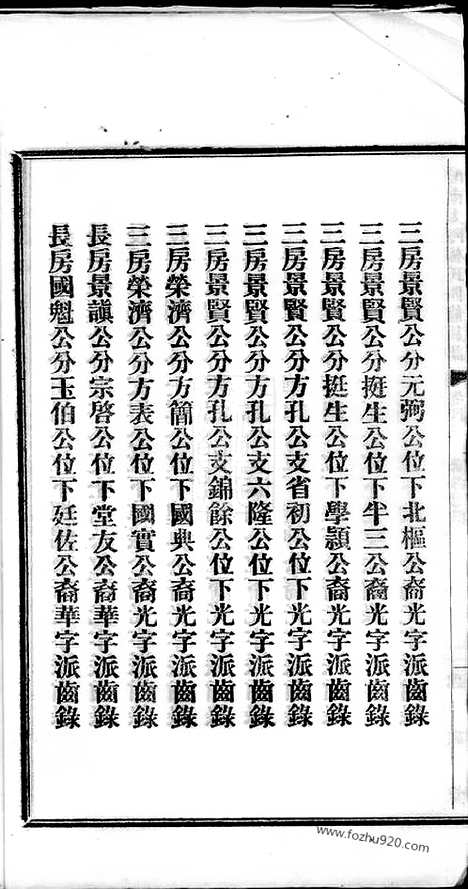 三房景賢公分元弼公位下北樞公裔光字派齒錄
三房景賢公分挺生公位下半三公裔光字派齒錄
三房景賢公分挺生公位下學顥公裔光字派齒錄
三房景賢公分方孔公支省初公位下光字派齒錄
三房景賢公分方孔公支六隆公位下光字派齒錄
三房景賢公分方孔公支錦餘公位下光字派齒錄
三房榮濟公分方簡公位下國典公裔光字派齒錄
三房榮濟公分方表公位下國實公裔光字派齒錄
長房景謨公分宗啓公位下堂友公裔華字派齒錄
長房國魁公分玉伯公位下廷佐公裔華字派齒錄
www.fozhu920.com